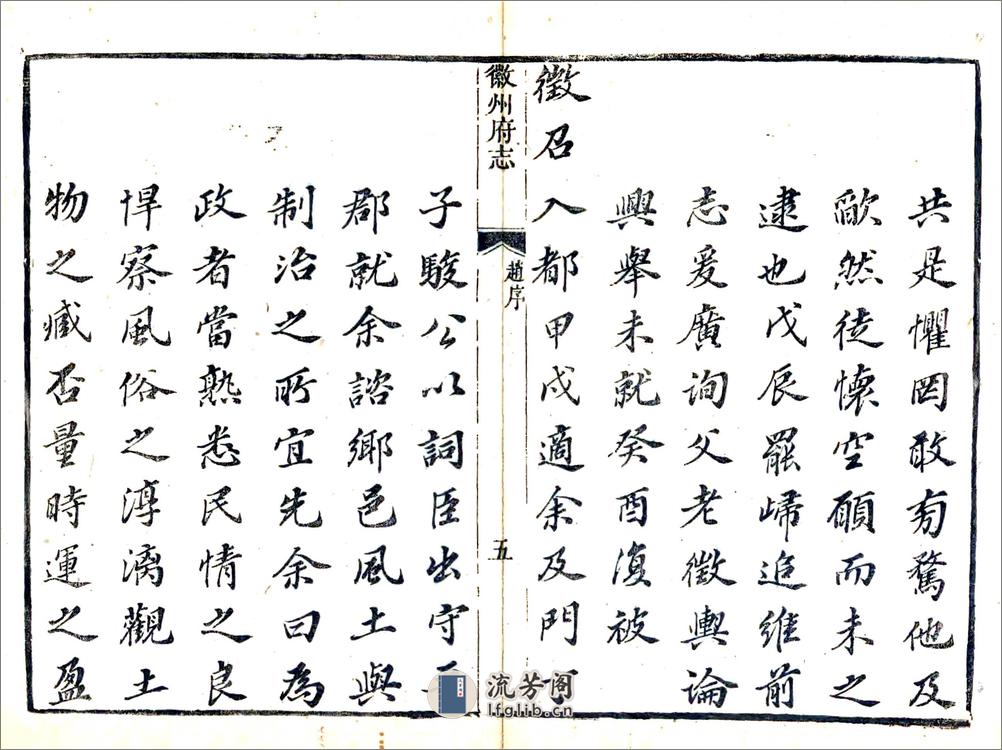 共是懼罔敢旁騖他及
歉然徒懷空願而未之
逮也戊辰罷歸追維前
志爰廣詢父老徵輿論
興舉未就癸酉復被
徵召入都甲戌適余及門
徽州府志
趙序
五
子駿公以詞臣出守
郡就余諮鄉邑風土與
制治之所宜先余曰為
政者當熟悉民情之良
悍察風俗之淳漓觀土
物之臧否量時運之盈
流芳阁
lfglib.cn